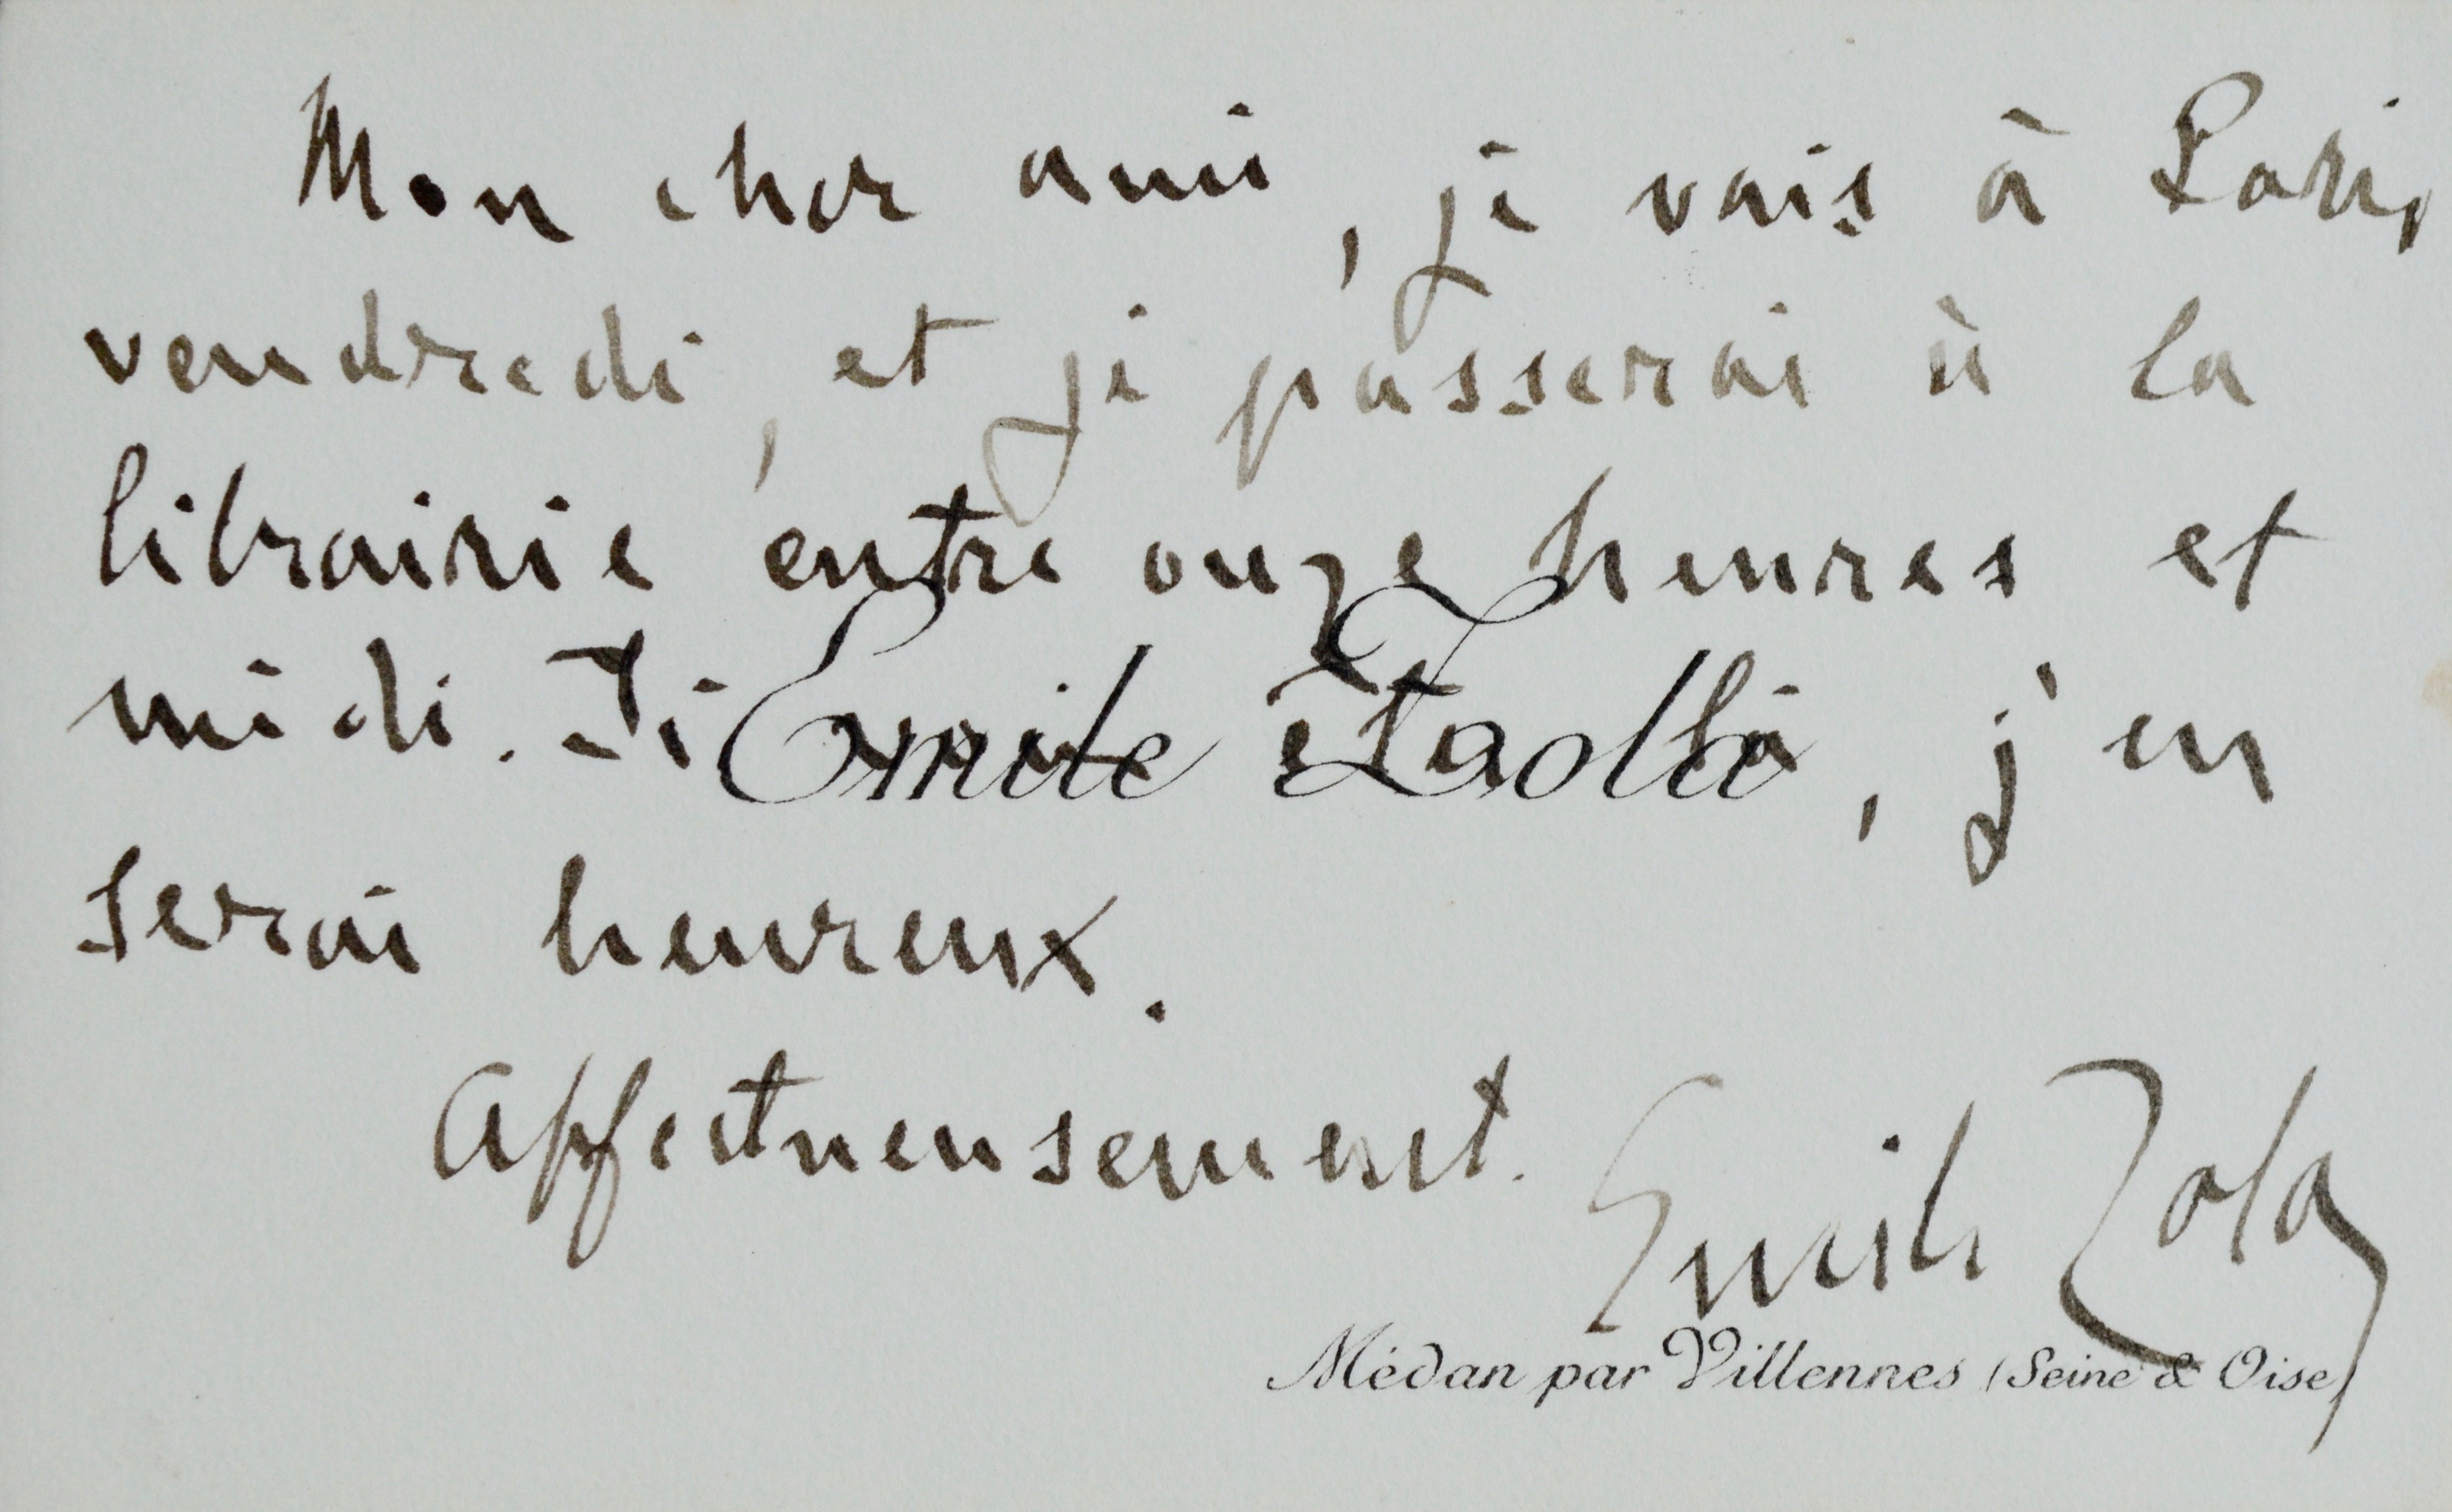 Mon cher ami, je vais à Paris
vendredi, et je passerai à la
librairie entre onze heures et
midi. Si vous êtes là, j'en
Emile Zola
serai heureux.
Affectueusement.
Emile Zola
Médan par Villennes (Seine & Oise)